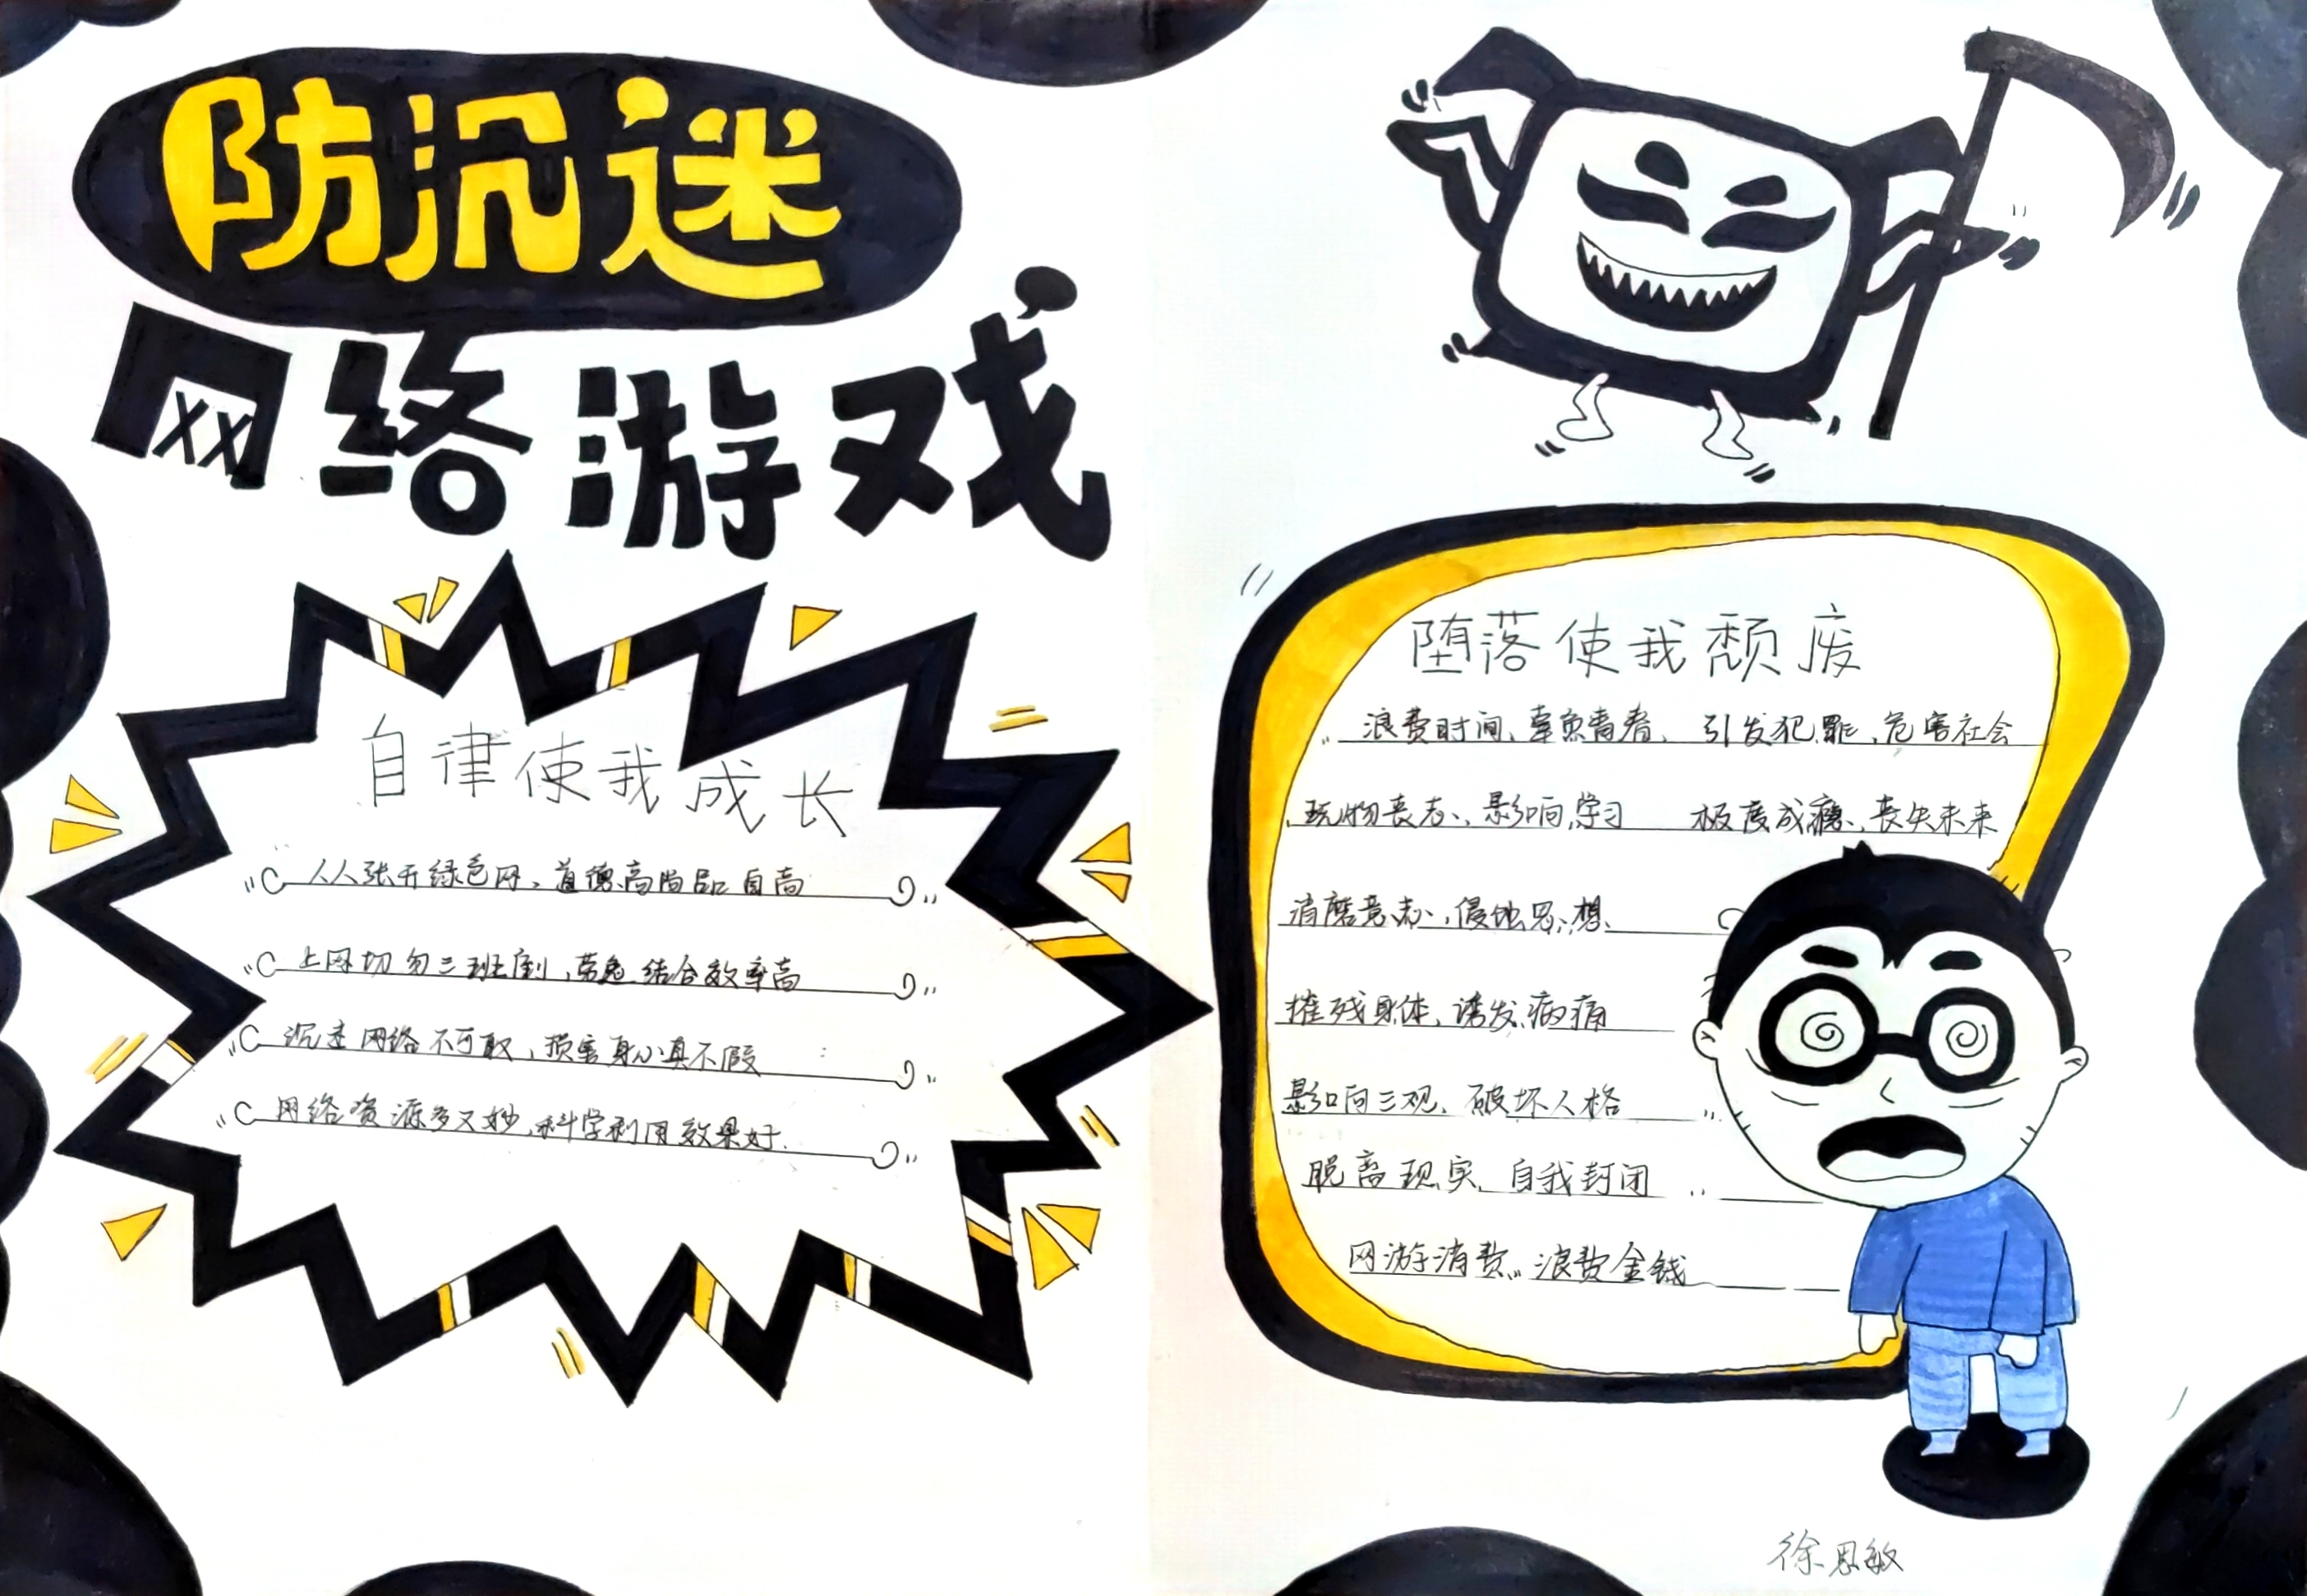 防沉迷
网络游戏
自律使我成长
人人张开绿色网、道德高尚品自高
上网切勿三班倒,劳逸结合效率高
沉迷网络不可取,损害身心真不假
网络资源多又妙,科学利用效果好.
堕落使我颓废
浪费时间、辜负青春、引发犯罪、危害社会
玩物丧志、影响学习 极度成瘾、丧失未来
消磨意志、侵蚀思想
摧残身体、诱发病痛
影响三观、破坏人格
脱离现实、自我封闭
网游消费、浪费金钱
徐恩敏